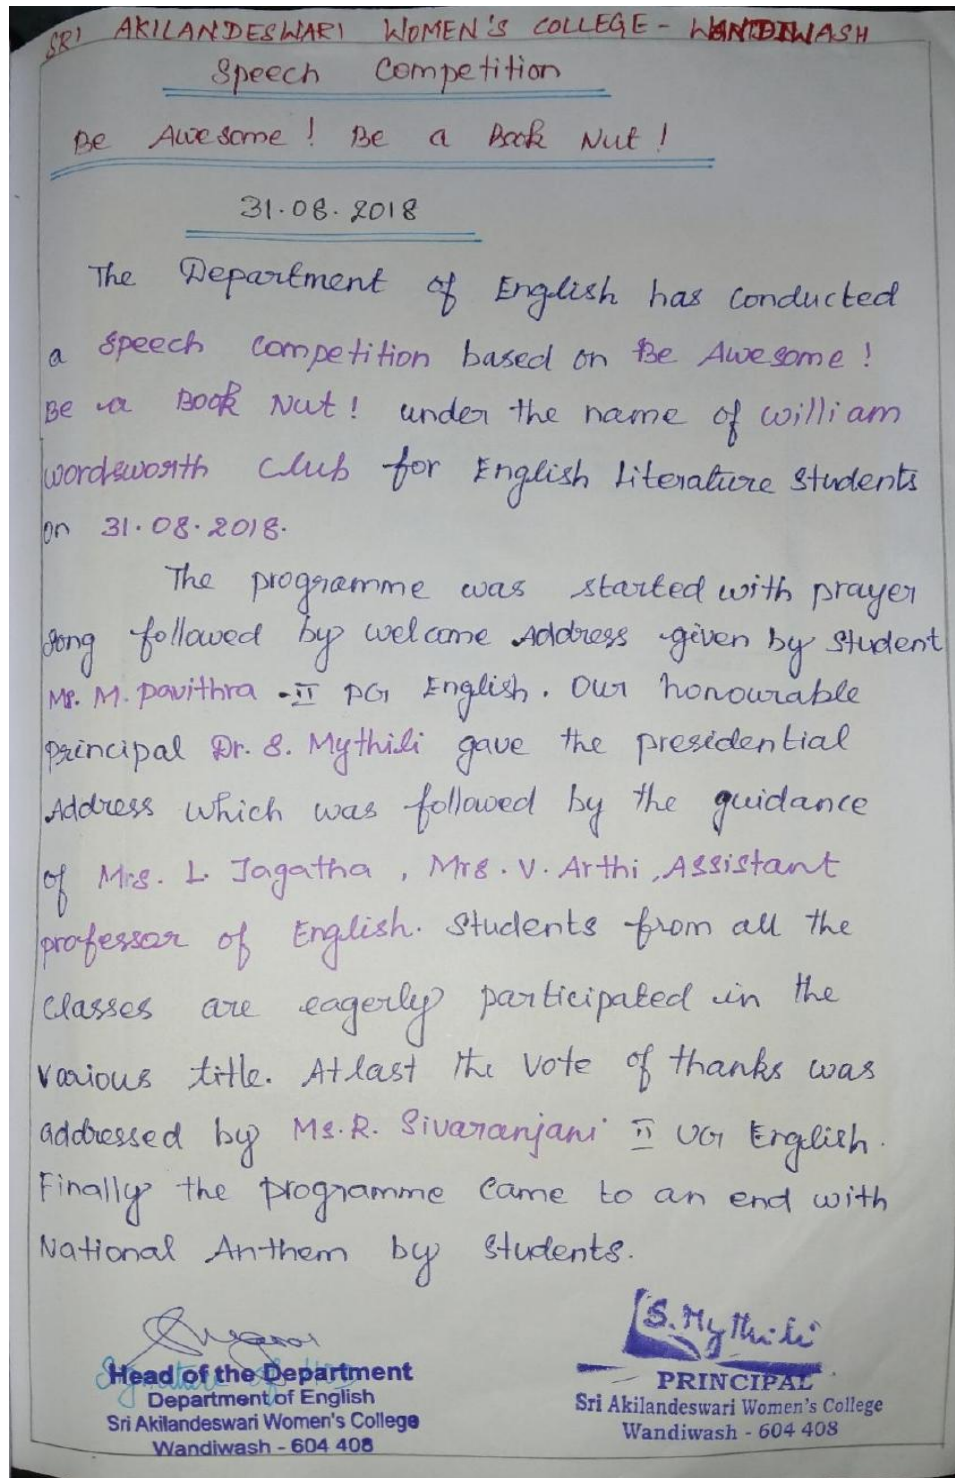 SRI AKILANDESWARI WOMEN'S COLLEGE - WANDIWASH
Speech Competition
Be Awesome! Be a Book Nut!
31.08.2018
The Department of English has conducted
a Speech Competition based on Be Awesome!
Be a Book Nut! under the name of William
Wordsworth Club for English Literature Students
on 31.08.2018.
The programme was started with prayer
song followed by welcome Address given by Student
Ms. M. Pavithra - II PG English. Our honourable
Principal Dr. S. Mythili gave the presidential
Address which was followed by the guidance
of Mrs. L. Jagatha, Mrs. V. Arthi, Assistant
professor of English. Students from all the
Classes are eagerly participated in the
Various title. At last the Vote of thanks was
addressed by Ms. R. Sivaranjani II UG English.
Finally the programme came to an end with
National Anthem by Students.
S. Mythili
Head of the Department
Department of English
Sri Akilandeswari Women's College
Wandiwash - 604 408
PRINCIPAL
Sri Akilandeswari Women's College
Wandiwash - 604 408